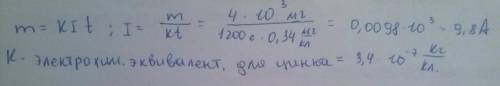 m = kIt ; I = m/kt = 4·10³ мг/1200 с · 0,34 мг/кл = 0,0098·10³ - 9,8 А
K - электрохим. эквивалент, для цинка = 3,4·10⁻⁷ кг/кл.